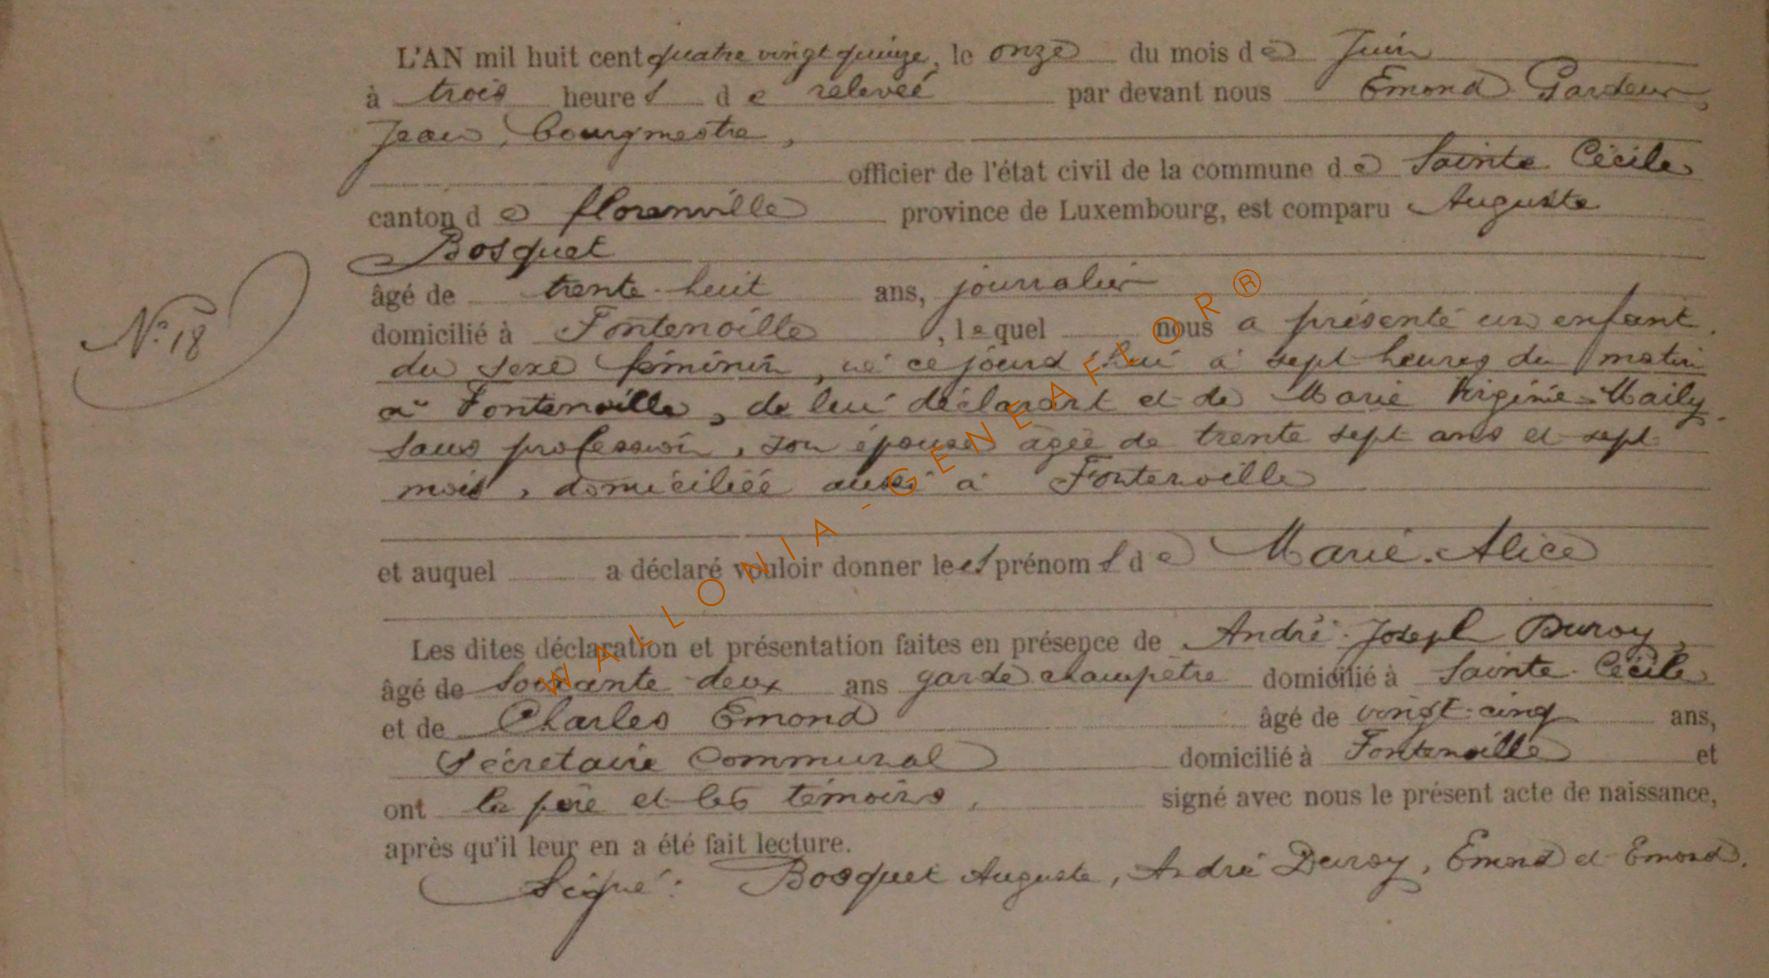 L'AN mil huit cent quatre vingt quinze, le onze du mois de Juin
à trois heures de relevée par devant nous Emond
Jean, bourgmestre,
officier de l'état civil de la commune de Sainte Cécile
canton de florenville province de Luxembourg, est comparu Auguste
Bosquet
âgé de trente-huit ans, journalier
domicilié à Fontenoille, lequel nous a présenté un enfant
N° 18
du sexe féminin, né ce jourd'hui à sept heures du matin
à Fontenoille, de lui déclarant et de Marie Virginie Mailly
sans profession, son épouse âgée de trente sept ans et sept
mois, domiciliée aussi à Fontenoille
et auquel a déclaré vouloir donner les prénoms de Marie-Alice
Les dites déclaration et présentation faites en présence de André-Joseph Duroy,
âgé de Soixante-deux ans garde champêtre domicilié à Sainte-Cécile
et de Charles Emond âgé de vingt-cinq ans,
Secrétaire communal domicilié à Fontenoille et
ont le père et les témoins, signé avec nous le présent acte de naissance,
après qu'il leur en a été fait lecture.
Signé: Bosquet Auguste, André Duroy, Emond et Emond.
WALLONIA-GENEAFLOR®